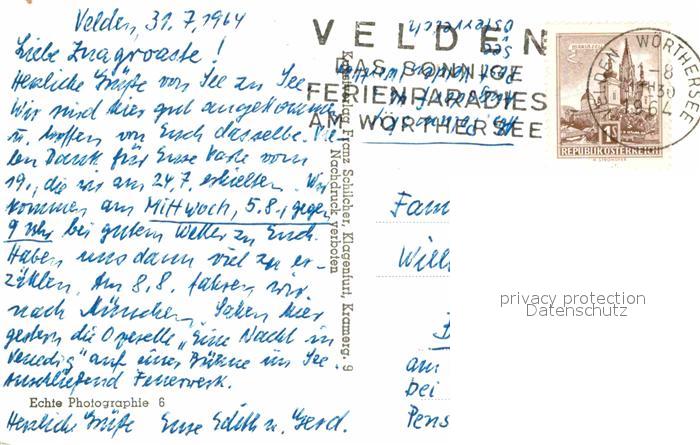 Velden, 31.7.1964
Liebe Zuagroaste!
Herzliche Grüße von See zu See.
Wir sind hier gut angekommen
u. hoffen von Euch dasselbe. Vie-
len Dank für Eure Karte vom
19., die wir am 24.7. erhielten. Wir
kommen am Mittwoch, 5.8., gegen
9 Uhr bei gutem Wetter zu Euch.
Haben uns dann viel zu er-
zählen. Am 8.8. fahren wir
nach München. Sahen hier
gestern die Operette „Eine Nacht in
Venedig" auf einer Bühne im See.
Anschließend Feuerwerk.
Echte Photographie 6
Herzliche Grüße Eure Edith u. Gerd.
Kunstverlag Franz Schilcher, Klagenfurt, Kramerg. 9
Nachdruck verboten
VELDEN
DAS SONNIGE
FERIENPARADIES
AM WÖRTHERSEE
Österreich
VELDEN WÖRTHERSEE
-8
1964
MARIAZELL
REPUBLIK ÖSTERREICH
Fam
Will
am
bei
Pens
privacy protection
Datenschutz